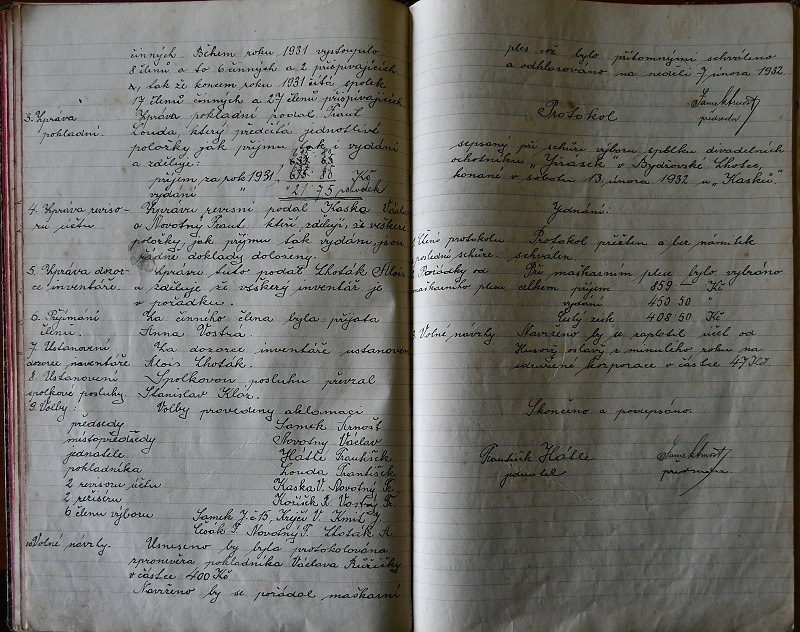 činných. Během roku 1931 vystoupilo
8 členů a to 6 činných a 2 přispívajících
tak že koncem roku 1931 čítá spolek
17 členů činných a 27 členů přispívajících.
3. Zpráva Zprávu pokladní podal Frant.
pokladní. Louda, který předčítá jednotlivé
položky jak příjmu tak i vydání
a zděluje:
příjem za rok 1931 Kč
vydání "
21 75
4. Zpráva reviso- Zprávu revisní podal Kaska Václ.
rů účtů a Novotný Frant. kteří zdělují, že veškeré
položky jak příjmu tak vydání, jsou
řádně doklady doloženy.
5. Zpráva dozor- Zprávu tuto podal Lhoták Alois
ce inventáře. a zděluje že veškerý inventář je
v pořádku.
6. Přijímání Za činného člena byla přijata
členů. Anna Vostrá.
7. Ustanovení Za dozorce inventáře ustanoven
dozorce inventáře Alois Lhoták.
8. Ustanovení Spolkovou posluhu převzal
spolkové posluhy. Stanislav Kloz.
9. Volby: Volby provedeny aklamací
předsedy Samek Arnošt
místopředsedy Novotný Václav
jednatele Hátle František
pokladníka Louda František
2 revisorů účtů Kaska V. Novotný Fr.
2 režisérů Kořínek R. Vostrý Fr.
6 členů výboru Samek J. č 15, Krejčí V. Kmit J.
Novotný F. Lhoták A.
10. Volné návrhy. Usneseno by byla protokolovana
zpronevěra pokladníka Václava Růžičky
v částce 400 Kč
Navrženo by se pořádal maškarní
ples což bylo přítomnými schváleno
a odhlasováno na neděli 7 února 1932.
Samek Arnošt
předseda
Protokol
sepsaný při schůzi výboru spolku divadelních
ochotníků „Jirásek" v Bydžovské Lhotce,
konané v sobotu 13. února 1932 u „Kasků".
Jednání:
1. Čtení protokolu Protokol přečten a bez námitek
poslední schůze. schválen.
2. Pořádky od Při maškarním plese bylo vybráno
maškarního plesu. celkem příjem 859 — Kč
vydání 450 50 "
čistý zisk 408 50 Kč
3. Volné návrhy. Navrženo by se zaplatil účet od
Husovy oslavy z minulého roku na
sdružené korporace v částce 47 Kč.
Skončeno a podepsáno.
František Hátle Samek Arnošt
jednatel předseda